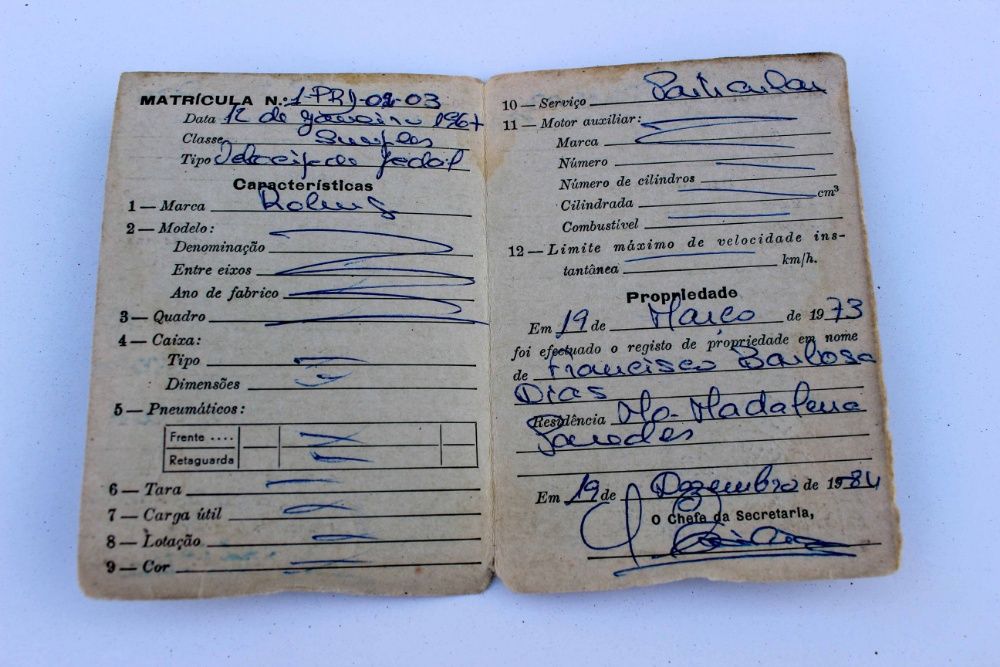 MATRÍCULA N.º 1-PRD-02-03
Data 12 de janeiro 1967
Classe Simples
Tipo Velocípede pedal
Características
1 — Marca
2 — Modelo:
Denominação
Entre eixos
Ano de fabrico
3 — Quadro
4 — Caixa:
Tipo
Dimensões
5 — Pneumáticos:
Frente ....
Retaguarda
6 — Tara
7 — Carga útil
8 — Lotação
9 — Cor
10 — Serviço Particular
11 — Motor auxiliar:
Marca
Número
Número de cilindros
Cilindrada cm³
Combustível
12 — Limite máximo de velocidade ins-
tantânea km/h.
Propriedade
Em 19 de Março de 1973
foi efectuado o registo de propriedade em nome
de Francisco Barbosa
Dias
Residência Madalena
Paredes
Em 19 de Dezembro de 1984
O Chefe da Secretaria,